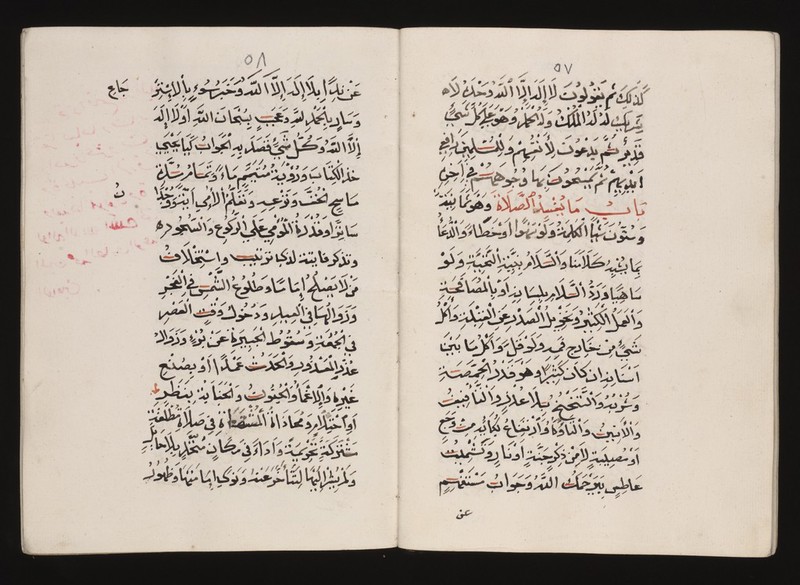 ٥٧
كذلك ثم يقولون لا اله الا الله وحده لا
شريك له له الملك وله الحمد وهو على كل شئ
قدير ثم يدعون لانفسهم وللمسلمين رافعي
ايديهم ثم يمسحون بها وجوههم في اخره
باب ما يفسد الصلاة وهو ثمانية
وستون شيئا الكلمة ولو سهوا او خطاء والدعا
بما يشبه كلامنا والسلام بنية التحية ولو
ساهيا ورد السلام بلسانه او بالمصافحة
والعمل الكثير وتحويل الصدر عن القبلة واكل
شئ من خارج فمه ولو قل واكل ما بين
اسنانه ان كان كثيرا وهو قدر الحمصة
وشربه والتنحنح بلا عذر والتافيف
والانين والتاوه وارتفاع بكائه من وجع
او مصيبة لا من ذكر جنة او نار وتشميت
عاطس بيرحمك الله وجواب مستفهم
عن
٥٨
عن ند بلا اله الا الله وخبر سوء بالاسترجاع
وسار بالحمد لله وعجب بسبحان الله او لا اله
الا الله وكل شئ قصد به الجواب كيا يحيى
خذ الكتاب ورؤية متيمم ماء وتمام مدة
ماسح الخف ونزعه وتعلم الامي اية ووجد
ساترا وقدرة المومي على الركوع والسجود
وتذكر فايتة لذي ترتيب واستخلاف
من لا يصلح اماما وطلوع الشمس في الفجر
وزوالها في العيد ودخول وقت العصر
في الجمعة وسقوط الجبيرة عن برء وزوال
عذر المعذور والحدث عمدا او بصنع
غيره والاغماء والجنون والجنابة بنظر
او احتلام ومحاذاة المشتهاة في صلاة مطلقة
مشتركة تحريمة واداء في مكان متحد بلا حايل
ولم يشر اليها لتتأخر عنه ونوى امامتها وظهور